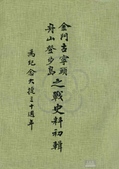 金門古寧頭
舟山登步島
之戰史料初輯
為紀念大捷三十週年